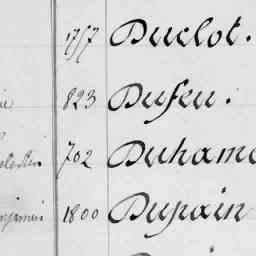 1757 Duclot.
823 Dufeu.
702 Duhame
1800 Dupain